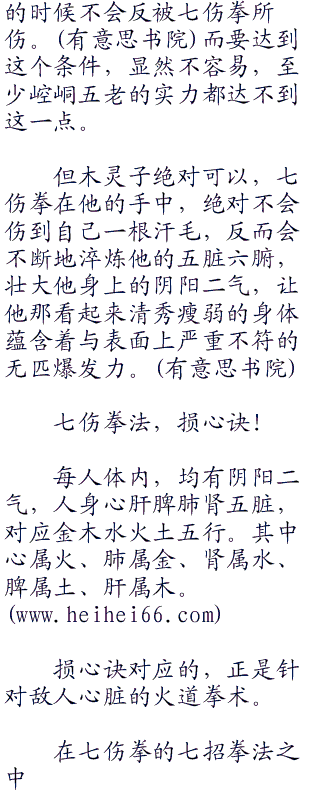 的时候不会反被七伤拳所
伤。(有意思书院)而要达到
这个条件，显然不容易，至
少崆峒五老的实力都达不到
这一点。
但木灵子绝对可以，七
伤拳在他的手中，绝对不会
伤到自己一根汗毛，反而会
不断地淬炼他的五脏六腑，
壮大他身上的阴阳二气，让
他那看起来清秀瘦弱的身体
蕴含着与表面上严重不符的
无匹爆发力。(有意思书院)
七伤拳法，损心诀！
每人体内，均有阴阳二
气，人身心肝脾肺肾五脏，
对应金木水火土五行。其中
心属火、肺属金、肾属水、
脾属土、肝属木。
(www.heihei66.com)
损心诀对应的，正是针
对敌人心脏的火道拳术。
在七伤拳的七招拳法之
中